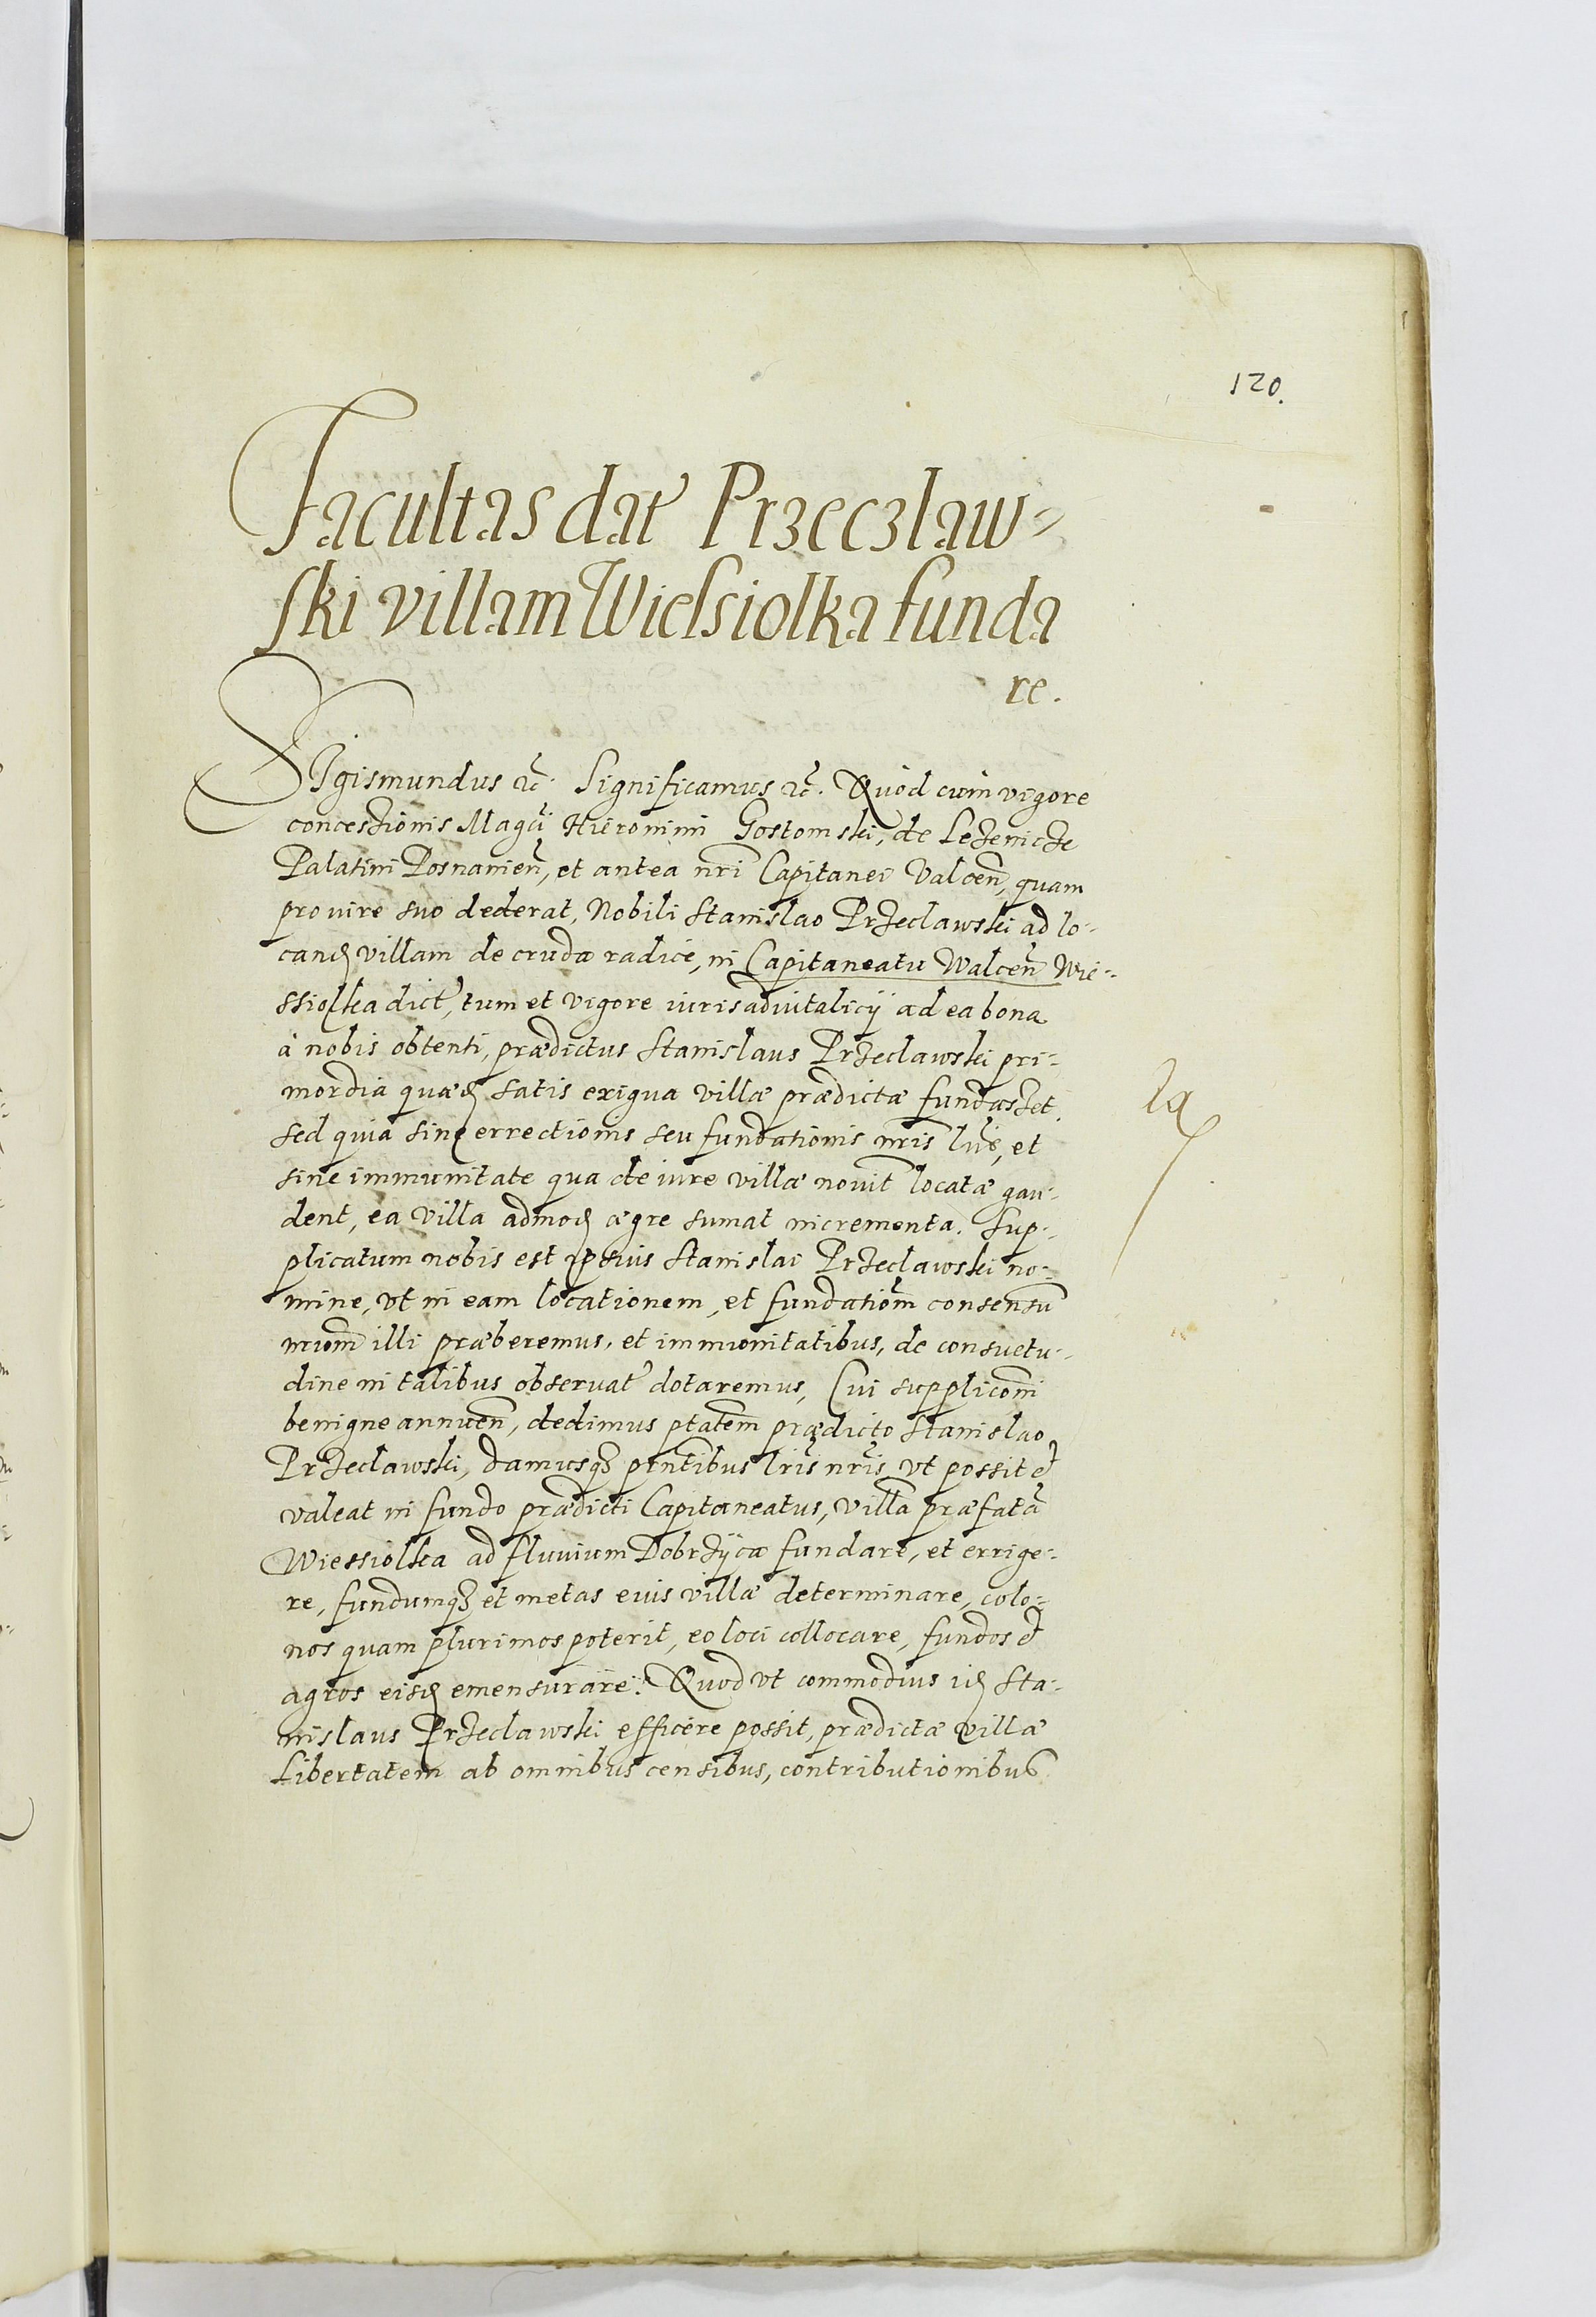 120.
Facultas dat' Przeczlaw-
ski villam Wiesiolka funda
re.
SIgismundus &c. Significamus &c. Quòd cum vigore
concessionis Magci Hieronimi Gostomski, de Lezenicze
Palatini Posnanien̄, et antea nr̄i Capitanei Valcen̄, quam
pro uire suo dederat, Nobili Stanislao Przeclawski ad lo-
cand villam de cruda radice, in Capitaneatu Walcen̄ Wie-
ssiolka dict', tum et vigore iuris aduitalicij ad ea bona
à nobis obtenti, prædictus Stanislaus Przeclawski pri-
mordia quæd satis exigua villæ prædictæ fundasset,
sed quia sine errectionis seu fundationis nr̄is lr̄is, et
sine immunitate qua de iure villæ nouit̄ locatæ gau-
dent, ea villa admod ægre sumat incrementa. Sup-
plicatum nobis est ipsius Stanislai Przeclawski no-
mine, vt in eam locationem, et fundation̄m consensū
nr̄um illi præberemus, et immunitatibus, de consuetu-
dine in talibus obseruat' dotaremus, Cui supplicōni
benigne annuen̄, dedimus ptatem̄ prædicto Stanislao
Przeclawski, damusq3 pn̄tibus lr̄is nr̄is vt possit et
valeat in fundo prædicti Capitaneatus, villā præfatā
Wiessiolka ad fluuium Dobrzÿca fundare, et errige-
re, fundumq3 et metas eius villæ determinare, colo-
nos quam plurimos poterit, eo loci collocare, fundos et
agros eisd emensurare. Quod vt commodius id Sta-
nislaus Przeclawski efficere possit, prædictæ villæ
Libertatem ab omnibus censibus, contributionibus